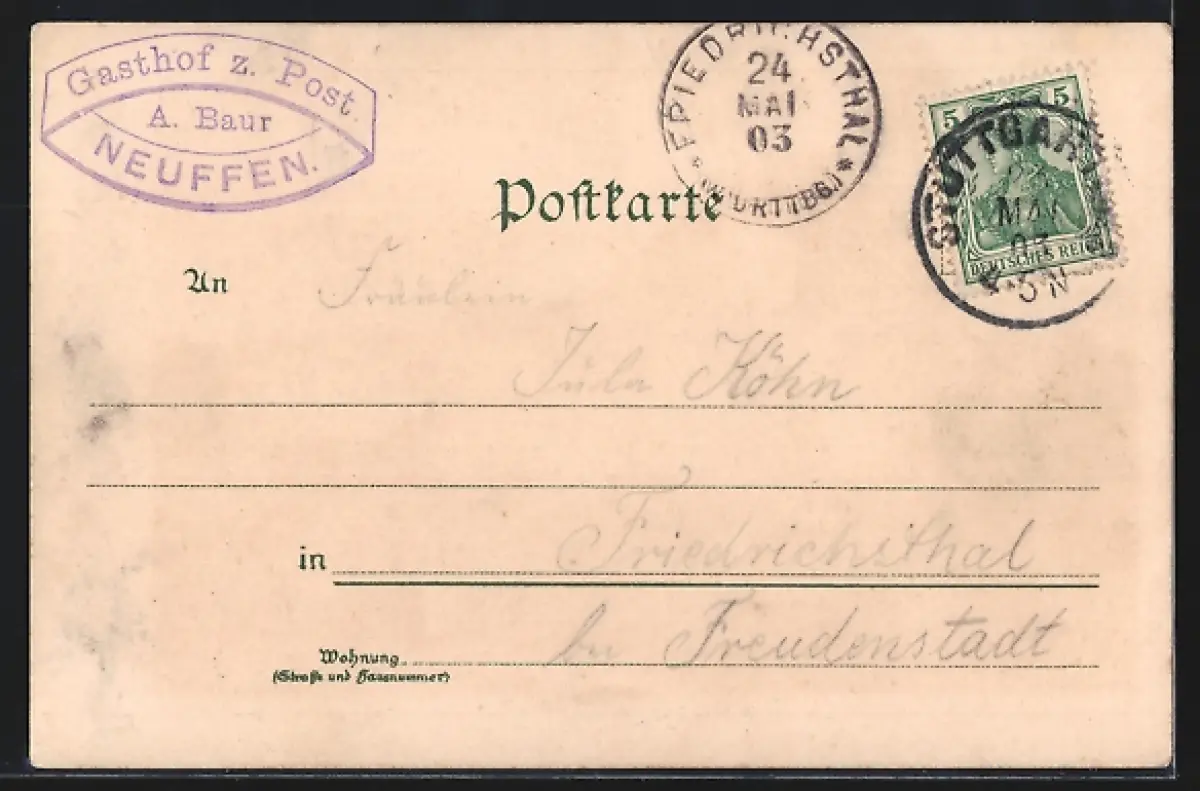 Gasthof z. Post.
A. Baur
NEUFFEN.
FRIEDRICHSTHAL
24
MAI
03
(WÜRTTBG.)
5 5
DEUTSCHES REICH
STUTTGART
MAI
03
5-6N
Postkarte
An Fräulein
Jula Köhn
in Friedrichsthal
bei Freudenstadt
Wohnung
(Straße und Hausnummer)